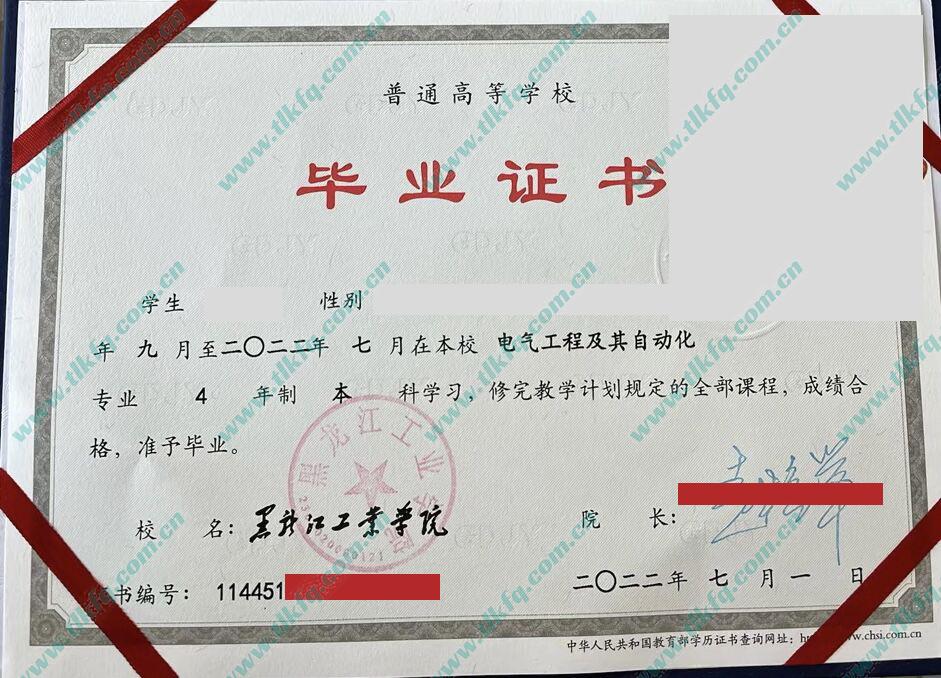 普通高等学校
毕业证书
学生 性别
年 九 月至二〇二二年 七 月在本校 电气工程及其自动化
专业 4 年制 本 科学习，修完教学计划规定的全部课程，成绩合
格，准予毕业。
黑龙江工业学院
校 名：黑龙江工业学院 院 长：
书编号：114451
二〇二二年 七 月 一 日
中华人民共和国教育部学历证书查询网址：www.chsi.com.cn
www.tlkfq.com.cn